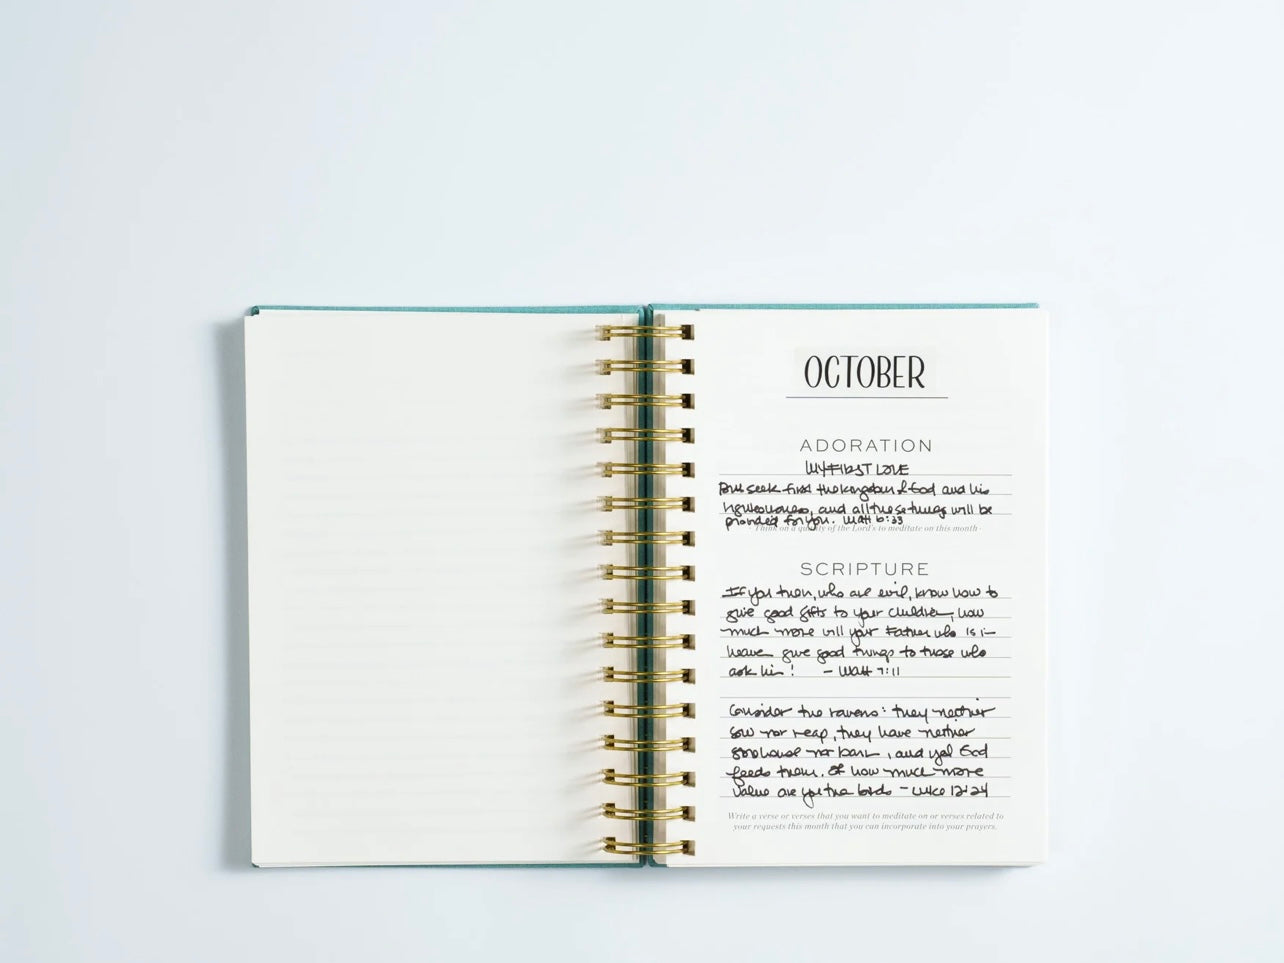 OCTOBER
ADORATION
MY FIRST LOVE
But seek first the kingdom of God and his
righteousness, and all these things will be
provided for you. Matt 6:33
Think on a quality of the Lord's to meditate on this month
SCRIPTURE
If you then, who are evil, know how to
give good gifts to your children, how
much more will your Father who is in
heaven give good things to those who
ask him! - Matt 7:11
Consider the ravens: they neither
sow nor reap, they have neither
storehouse nor barn, and yet God
feeds them. Of how much more
value are you the birds - Luke 12:24
Write a verse or verses that you want to meditate on or verses related to
your requests this month that you can incorporate into your prayers.